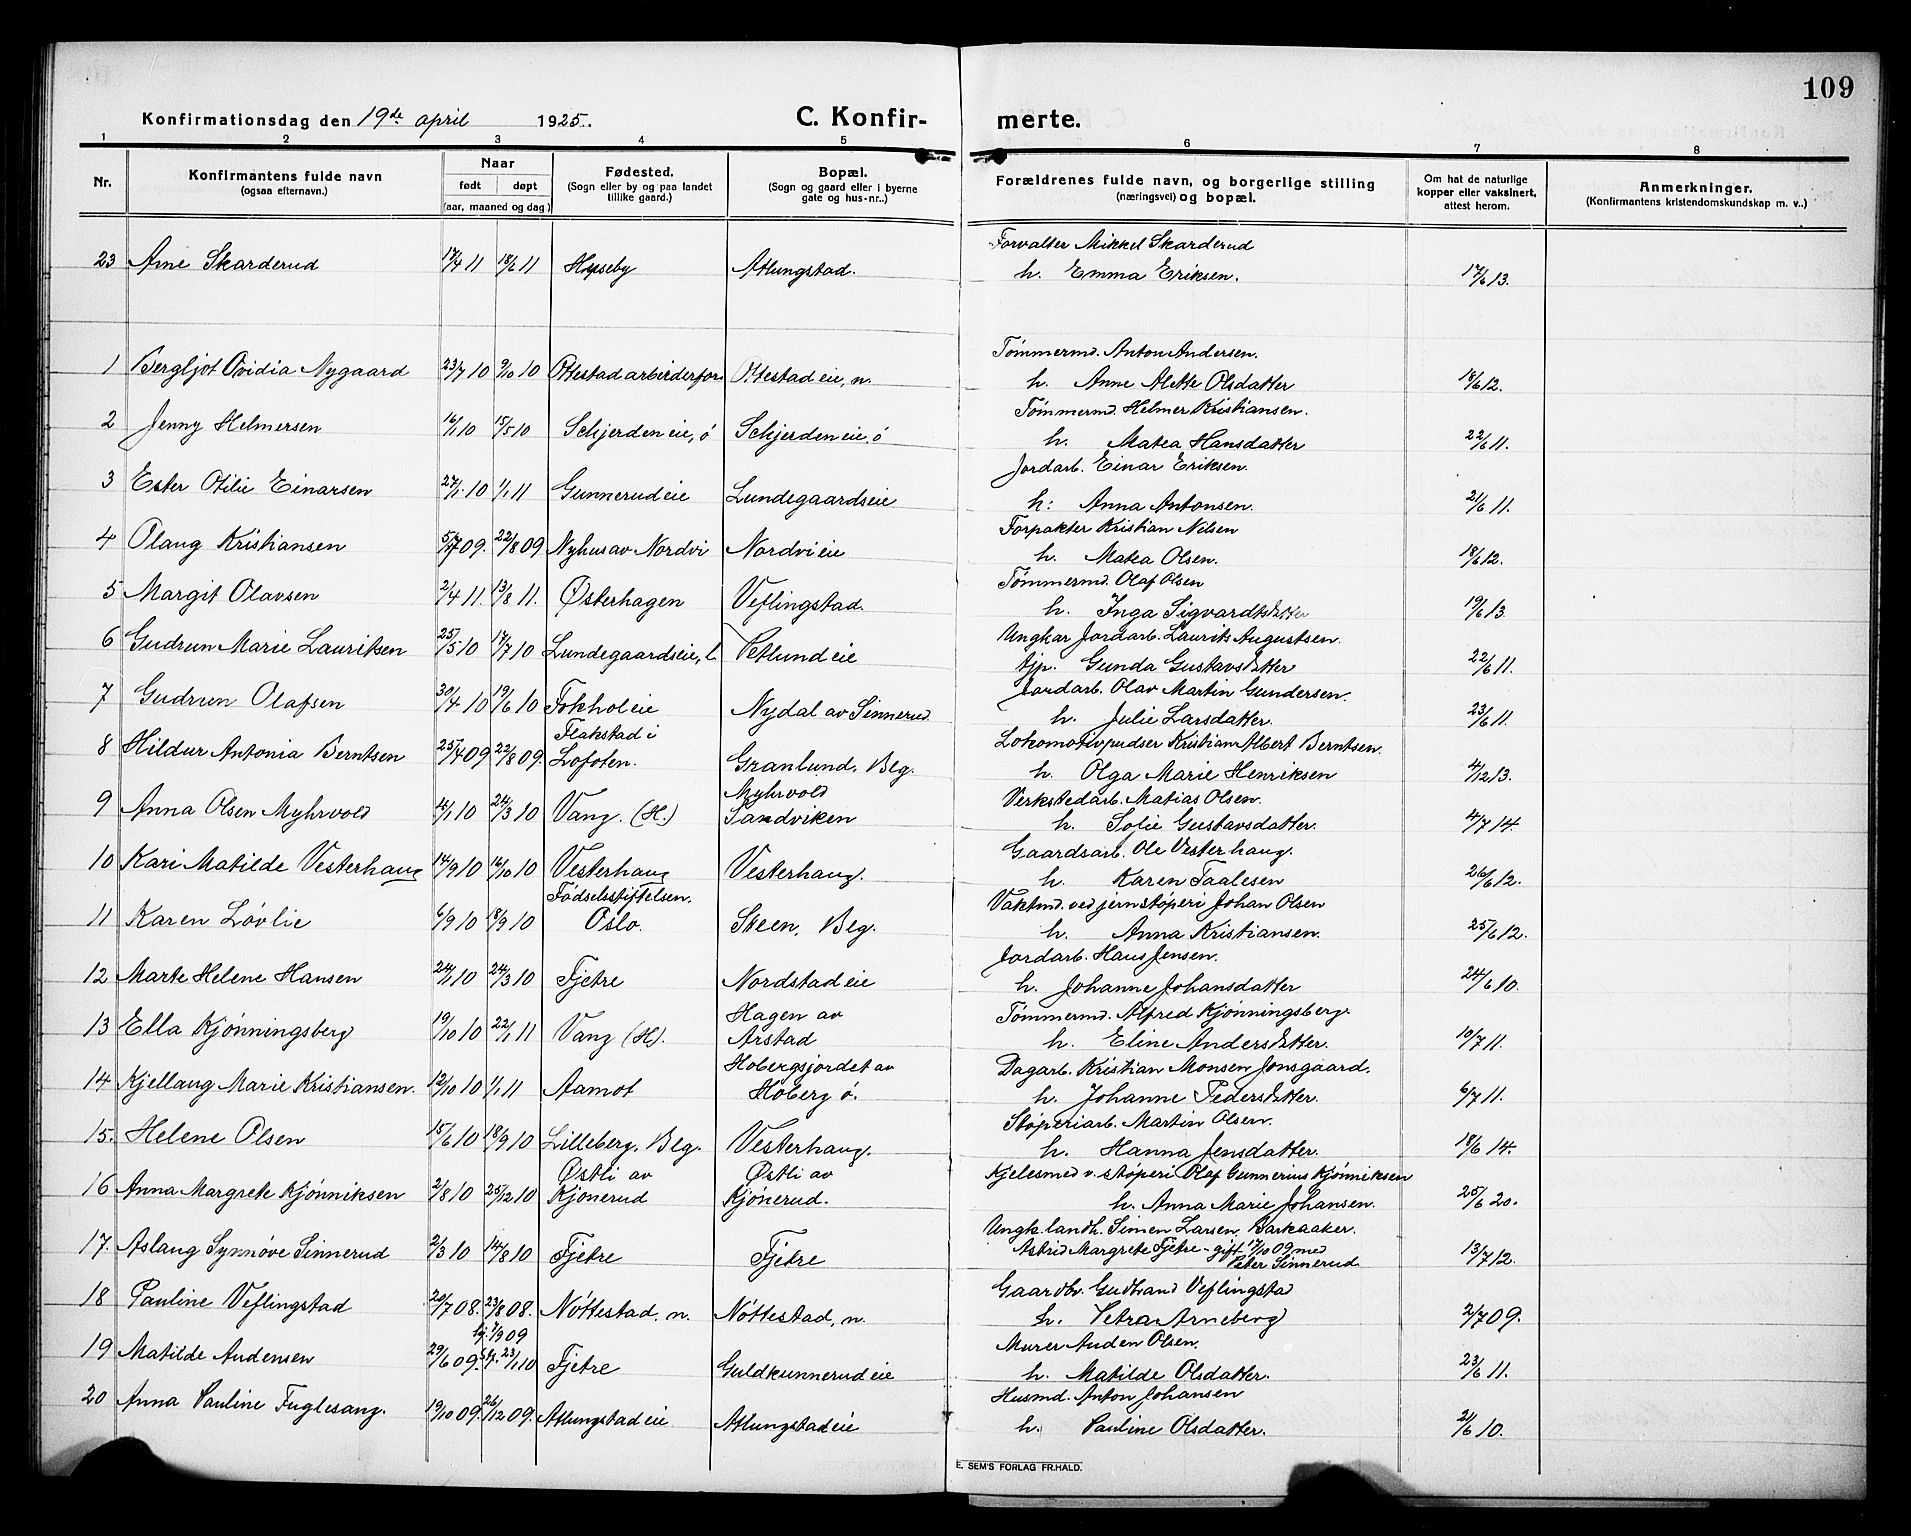 109
Konfirmationsdag den 19de april 1925.
C. Konfir-
merte.
1 2 3 4 5 6 7 8
Nr.
Konfirmantens fulde navn
(ogsaa efternavn.)
Naar
født døpt
(aar, maaned og dag.)
Fødested.
(Sogn eller by og paa landet
tillike gaard.)
Bopæl.
(Sogn og gaard eller i byerne
gate og hus-nr..)
Forældrenes fulde navn, og borgerlige stilling
(næringsvei) og bopæl.
Om hat de naturlige
kopper eller vaksinert,
attest herom.
Anmerkninger.
(Konfirmantens kristendomskundskap m. v..)
Forvalter Mikkel Skarderud
23 Arne Skarderud 17/4 11 18/6 11 Hyseby Atlungstad. h. Emma Eriksen. 17/6 13.
Tømmermd. Anton Andersen.
1 Bergljot Ovidia Nygaard 23/7 10 9/10 10 Ottestad arbeiderfor. Ottestadeie, n. h. Anne Alette Olsdatter 18/6 12.
Tømmermd. Helmer Kristiansen.
2 Jenny Helmersen 16/1 10 15/5 10 Schjerdeneie, ø Schjerdeneie, ø h. Matea Hansdatter 22/6 11.
Jordarb. Einar Eriksen.
3 Ester Otilie Einarsen 27/1 10 1/1 11 Gunnerudeie Lundegaardseie h: Anna Antonsen. 21/6 11.
Forpakter Kristian Nilsen
4 Olaug Kristiansen 5/7 09. 22/8 09 Nyhus av Nordvi Nordvieie h. Matea Olsen. 18/6 12.
Tømmermd. Olaf Olsen
5 Margit Olavsen 2/4 11. 13/8 11. Østerhagen Veflingstad. h. Inga Sigvardtsdatter 19/6 13.
Ungkar Jordarb. Laurits Augustsen.
6 Gudrun Marie Lauritsen 25/5 10 17/7 10 Lundegaardseie, l. Vetlundeie tjp. Gunda Gustavsdatter 22/6 11.
Jordarb. Olav Martin Gundersen.
7 Gudrun Olafsen 30/4 10 19/6 10 Fokholeie Nydal av Sinnerud. h. Julie Larsdatter. 23/6 11.
Flakstad i Lokomotivpudser Kristian Albert Berntsen.
8 Hildur Antonia Berntsen 25/4 09 22/8 09. Lofoten. Granlund, Blg. h. Olga Marie Henriksen 4/12 13.
Myhrvold Verkstedarb. Matias Olsen.
9 Anna Olsen Myhrvold 12/1 10 24/3 10 Vang. (H.) Sandviken h. Solie Gustavsdatter. 4/7 14.
Gaardsarb. Ole Vesterhaug.
10 Kari Matilde Vesterhaug 14/9 10 16/10 10 Vesterhaug Vesterhaug. h. Karen Taalesen 26/6 12.
Fødselsstiftelsen. Vaktmd. ved jernstøperi Johan Olsen
11 Karen Løvlie 6/9 10 18/9 10 Oslo. Steen, Blg. h. Anna Kristiansen. 25/6 12.
Jordarb. Hans Jensen.
12 Marte Helene Hansen 24/1 10 24/3 10 Fjetre Nordstadeie h. Johanne Johansdatter 24/6 10.
Hagen av Tømmermd. Alfred Kjønningsberg.
13 Ella Kjønningsberg 19/10 10 22/1 11 Vang (H). Arstad h. Eline Andersdatter. 10/7 11.
Hobergsjordet av Dagarb. Kristian Monsen Jonsgaard.
14 Kjellaug Marie Kristiansen. 12/10 10 1/1 11 Aamot Hoberg ø. h. Johanne Pedersdatter. 6/7 11.
Støperiarb. Martin Olsen.
15. Helene Olsen 15/6 10 18/9 10 Lilleberg, Blg. Vesterhaug. h. Hanna Jensdatter. 18/6 14.
Østli av Østli av Kjelesmed v. støperi Olaf Gunnerius Kjønniksen
16 Anna Margrete Kjønniksen 2/8 10 25/12 10 Kjønerud Kjønerud. h. Anna Marie Johansen. 25/6 20.
Ungk. landh. Simen Larsen, Barkaaker.
17. Aslaug Synnøve Sinnerud 2/3 10 14/8 10 Fjetre Fjetre Astrid Margrete Fjetre - gift 17/10 09 med 13/7 12.
Peter Sinnerud
Gaardbr. Gudbrand Veflingstad
18 Pauline Veflingstad 20/7 08. 23/8 08. Nøttestad, n. Nøttestad, n. h. Petra Arneberg 2/7 09.
hj. 7/9 09 Murer Auden Olsen.
19 Matilde Audensen 29/6 09. st. 23/1 10 Fjetre Guldkunnerudeie h. Matilde Olsdatter. 23/6 11.
Husmd. Anton Johansen
20 Anna Pauline Fuglesang. 19/10 09. 26/12 09. Atlungstadeie Atlungstadeie h. Pauline Olsdatter. 21/6 10.
E. SEM'S FORLAG FR.HALD.